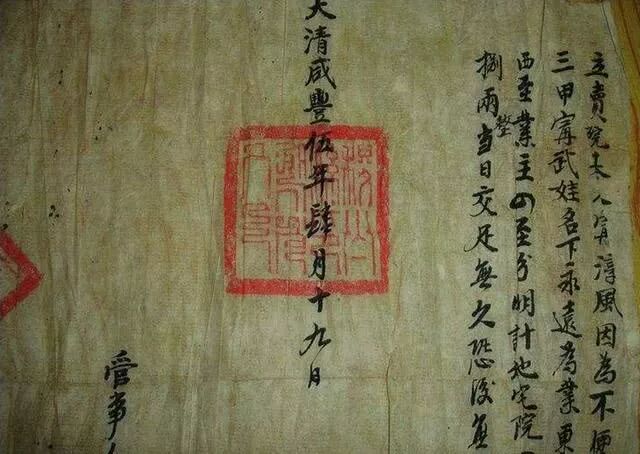 立賣院夫人甯淳風因為不便
三甲甯武姓名下永遠為業東
西至業主四至分明計地宅院
捌兩整當日交足無欠恐後無
大清咸豐伍年肆月十九日
管事